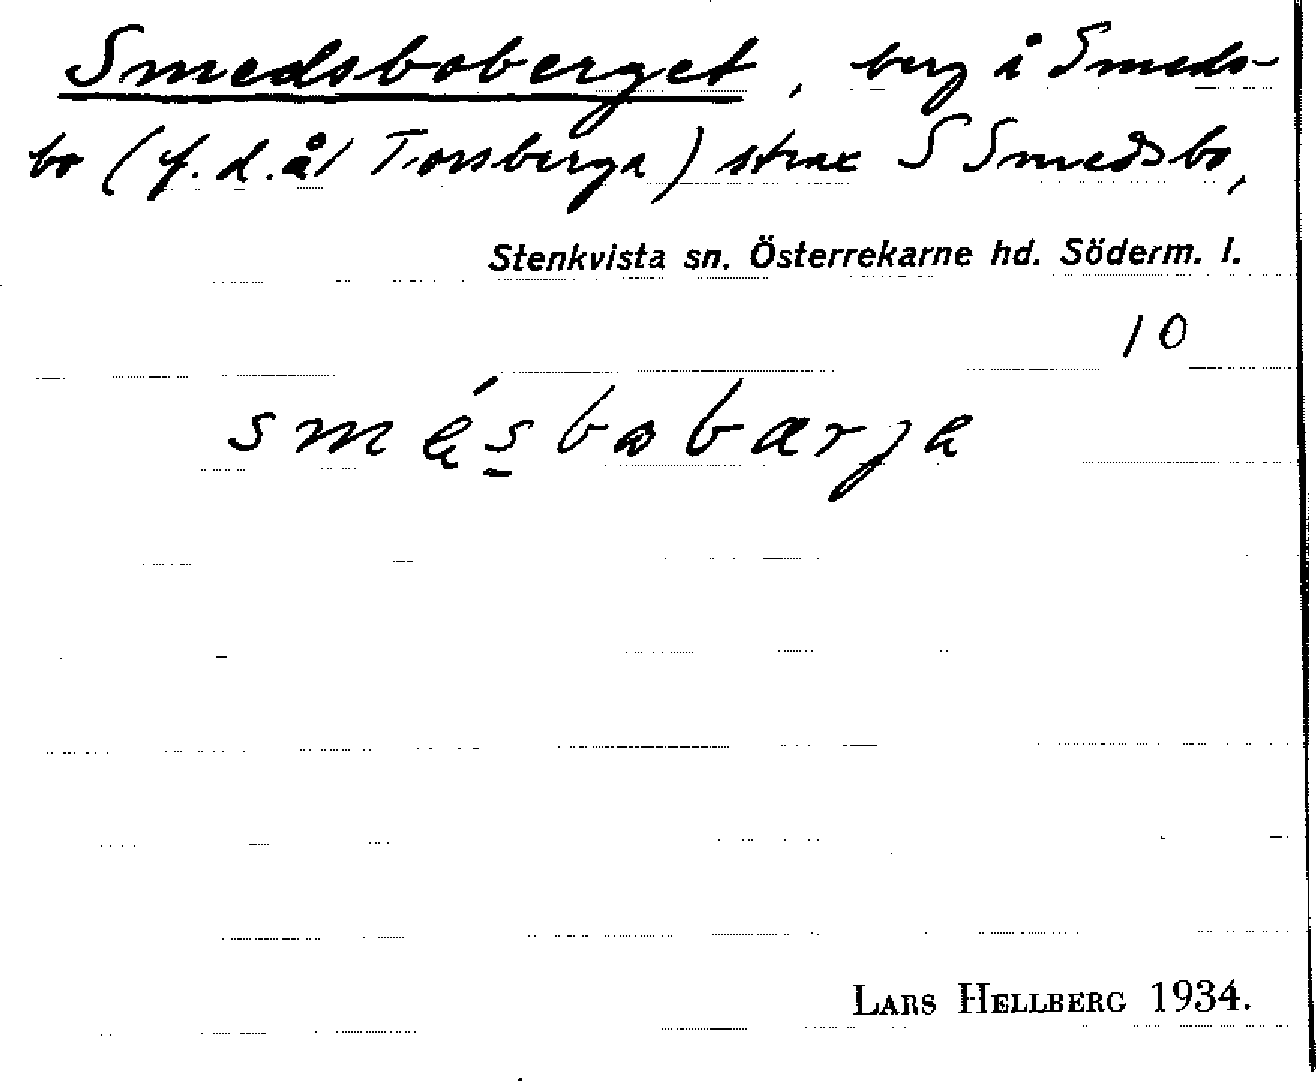 Smedsboberget, berg å Smeds-
bo (f.d. ål Torsberga) strax S Smedsbo,
Stenkvista sn. Österrekarne hd. Söderm. l.
10
smésbobærjε
LARS HELLBERG 1934.